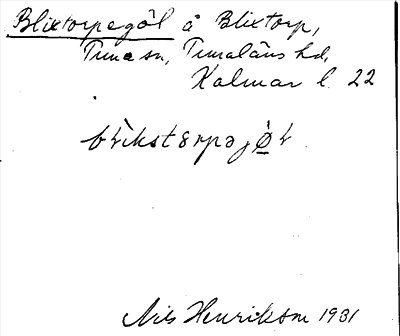 Blixtorpegöl å Blixtorp,
Tuna sn, Tunaläns hd,
Kalmar l. 22
bliksterpəjö̀l
Nils Henrikson 1931